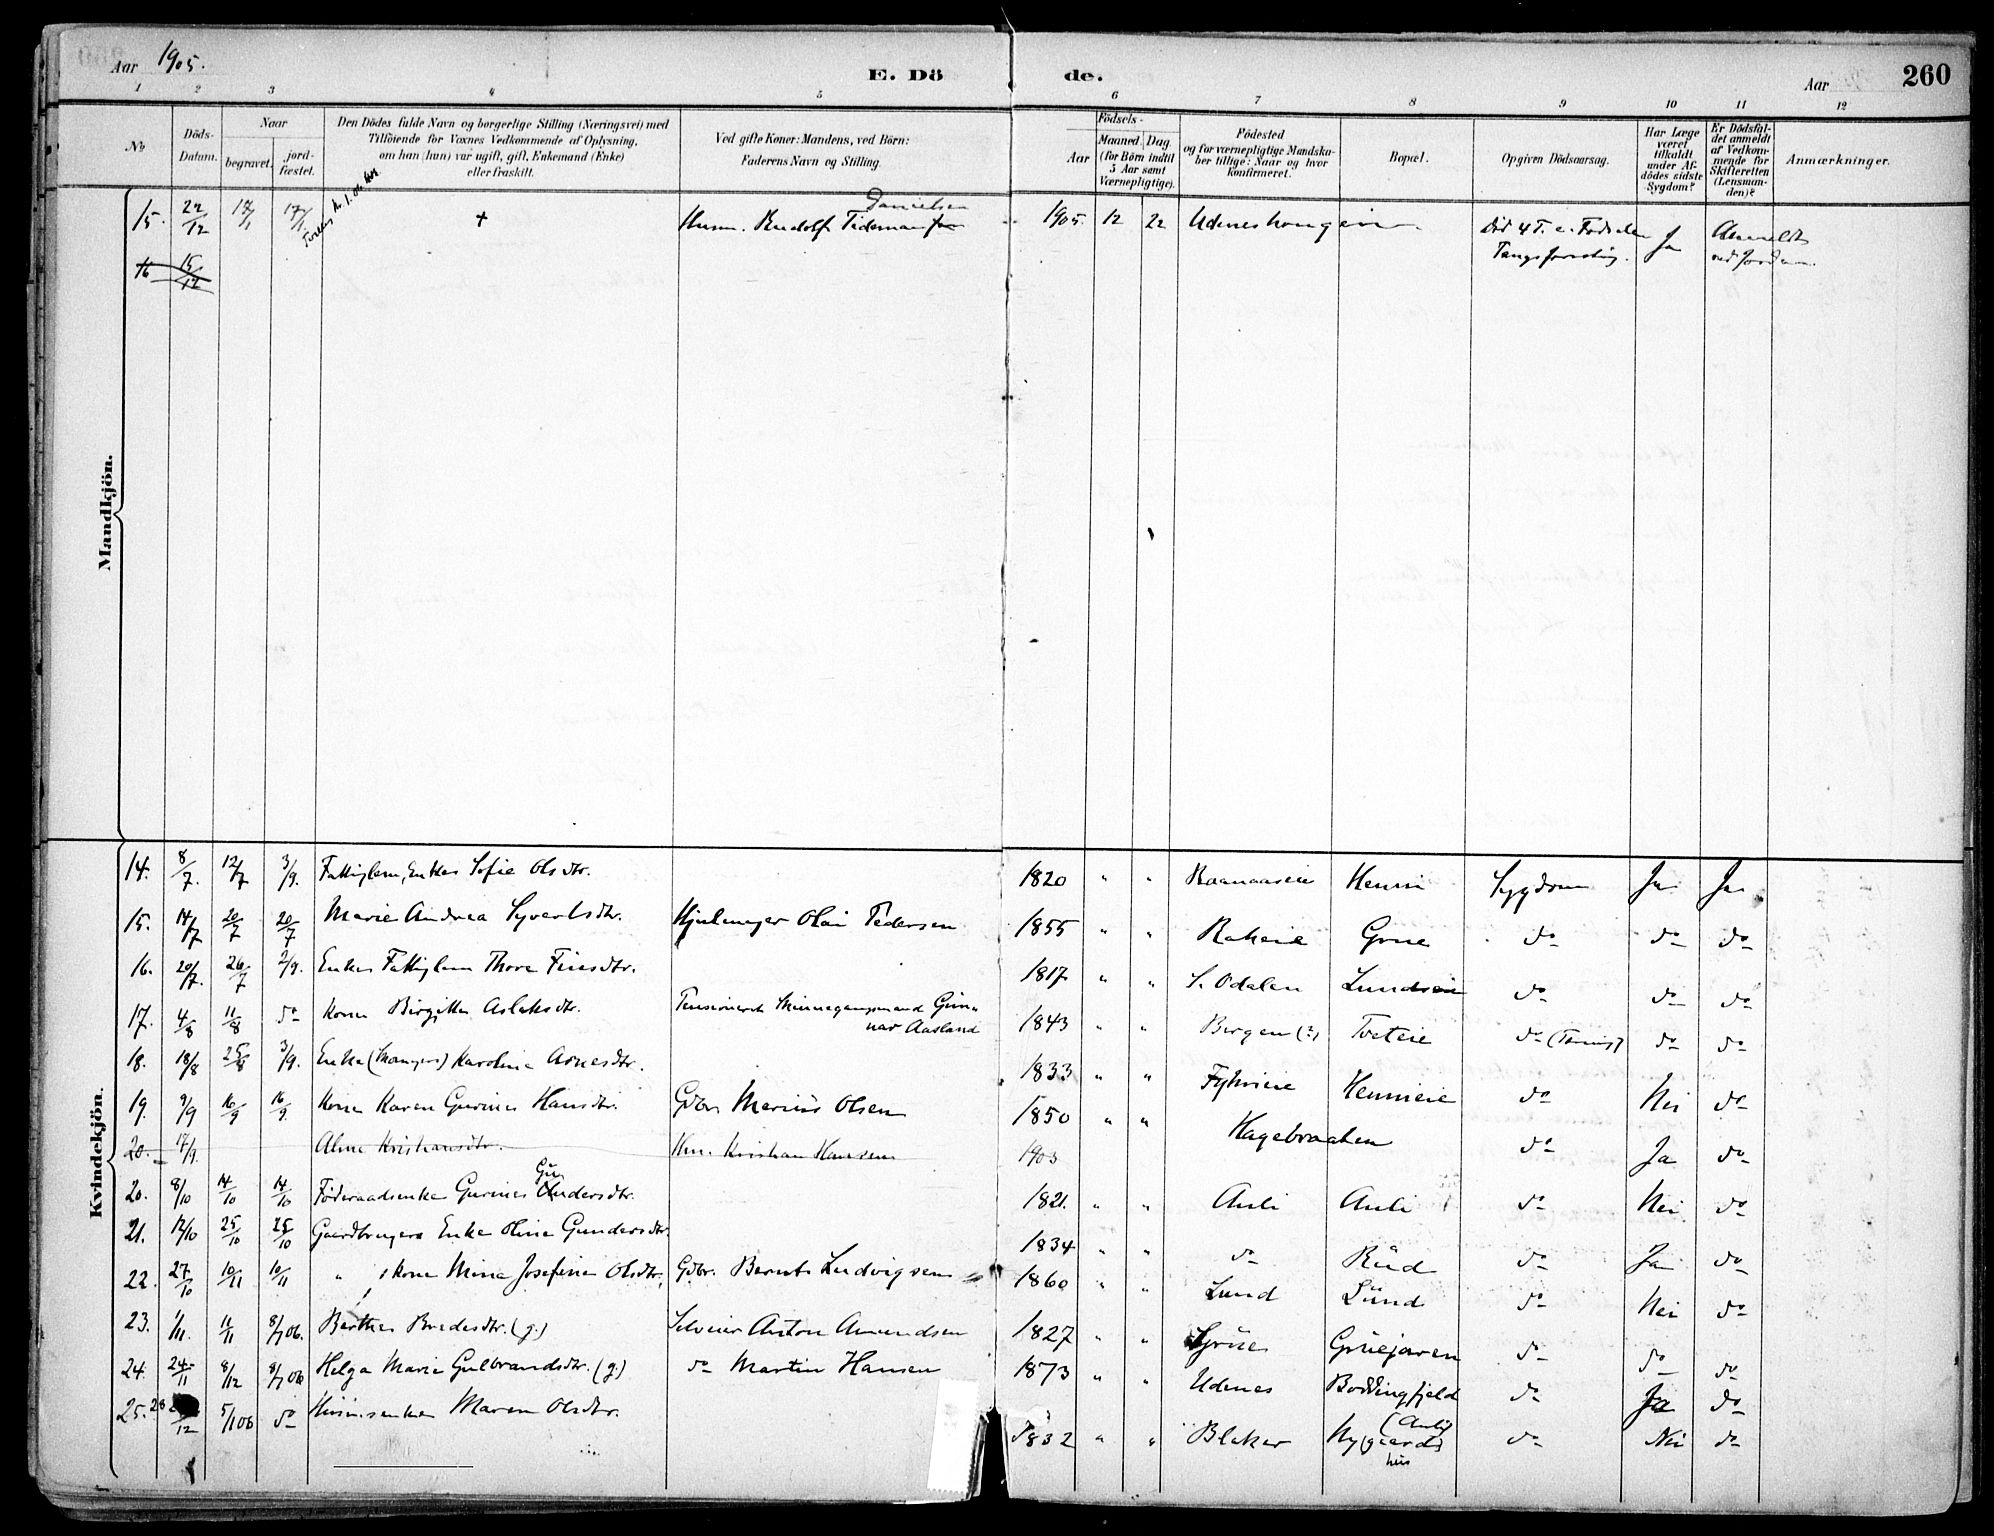 Aar 1905. E. Dö de. Aar 260
1 2 3 4 5 6 7 8 9 10 11 12
No
Döds-Datum.
Naar
begravet.
jord-fæstet.
Den Dödes fulde Navn og borgerlige Stilling (Næringsvei) med
Tilföiende for Voxnes Vedkommende af Oplysning,
om han (hun) var ugift, gift, Enkemand (Enke)
eller fraskilt.
Ved gifte Koner: Mandens, ved Börn:
Faderens Navn og Stilling.
Födsels-
Aar
Maaned. Dag.
(for Börn indtil
5 Aar samt
Værnepligtige).
Födested
og for værnepligtige Mandska-
ber tillige: Naar og hvor
konfirmeret.
Bopæl.
Opgiven Dödsaarsag.
Har Læge
været
tilkaldt
under Af-
dödes sidste
Sygdom?
Er Dödsfal-
det anmeldt
af Vedkom-
mende for
Skifteretten
(Lensman-
den)?
Anmærkninger.
Mandkjön.
Danielsen
15. 22/12 17/1 17/1 + Husm. Rudolf Tideman 1905. 12 22 Udneshougen Död 4 T. e. Födselen Ja Anmeldt
16 15/12
Kvindekjön.
14. 8/7. 12/7 3/9. Fattiglem, Enken Sofie Olsdtr. 1820 " " Henni Sygdom Ja Ja
15. 14/7 20/7 20/7 Marie Andrea Syvertsdtr. Hjulmager Olai Pedersen 1855 " " Rakeie Grue do do do
16. 20/7. 26/7 2/9. Enken Fattiglem Thore Finsdtr. 1817 " " S. Odalen Lundseie do do do
17. 4/8 11/8 do Kone Birgitte Aslaksdtr. Pensioneret Gun-
nar Aasland 1843 " " Bergen (?) Tveteie do do do
18. 18/8 25/8 3/9. Enke Karoline Arnesdtr. 1833 " " Hennieie do Nei do
19. 9/9 16/9 16/9. Kone Karen Gurine Hansdtr. Gdbr. Marius Olsen 1850 " " Hagebraaten do Ja do
20. 17/9. Alma Kristiansdtr. Hm. Kristian Hansen 1903
20. 8/10 14/10 14/10 Föderaadsenke Gurine Gundersdtr. 1821. " " Auli Auli do Nei do
21. 17/10 25/10 25/10 Gaardbrugers Enke Oline Gundersdtr. 1834 " " do Rud do Ja do
22. 27/10 10/11 10/11 " kone Mina Josefine Olsdtr. Gdbr. Bernt Ludvigsen 1860 " " Lund Lund do Nei do
23. 1/11. 11/11 8/1 06. Berthe Bredesdtr. (g.) Selveier Anton Amundsen 1827 " " Grue Gruejaren do do do
24. 24/11 8/12 8/1 06 Helga Marie Gulbrandsdtr. (g.) do Martin Hansen 1873 " " Udenes Boddingfjeld do Ja do
25. 28/12 5/1 06 do Husmsenken Maren Olsdtr. 1832 " " Blaker Nygaards
hus
(Auli) do Nei do